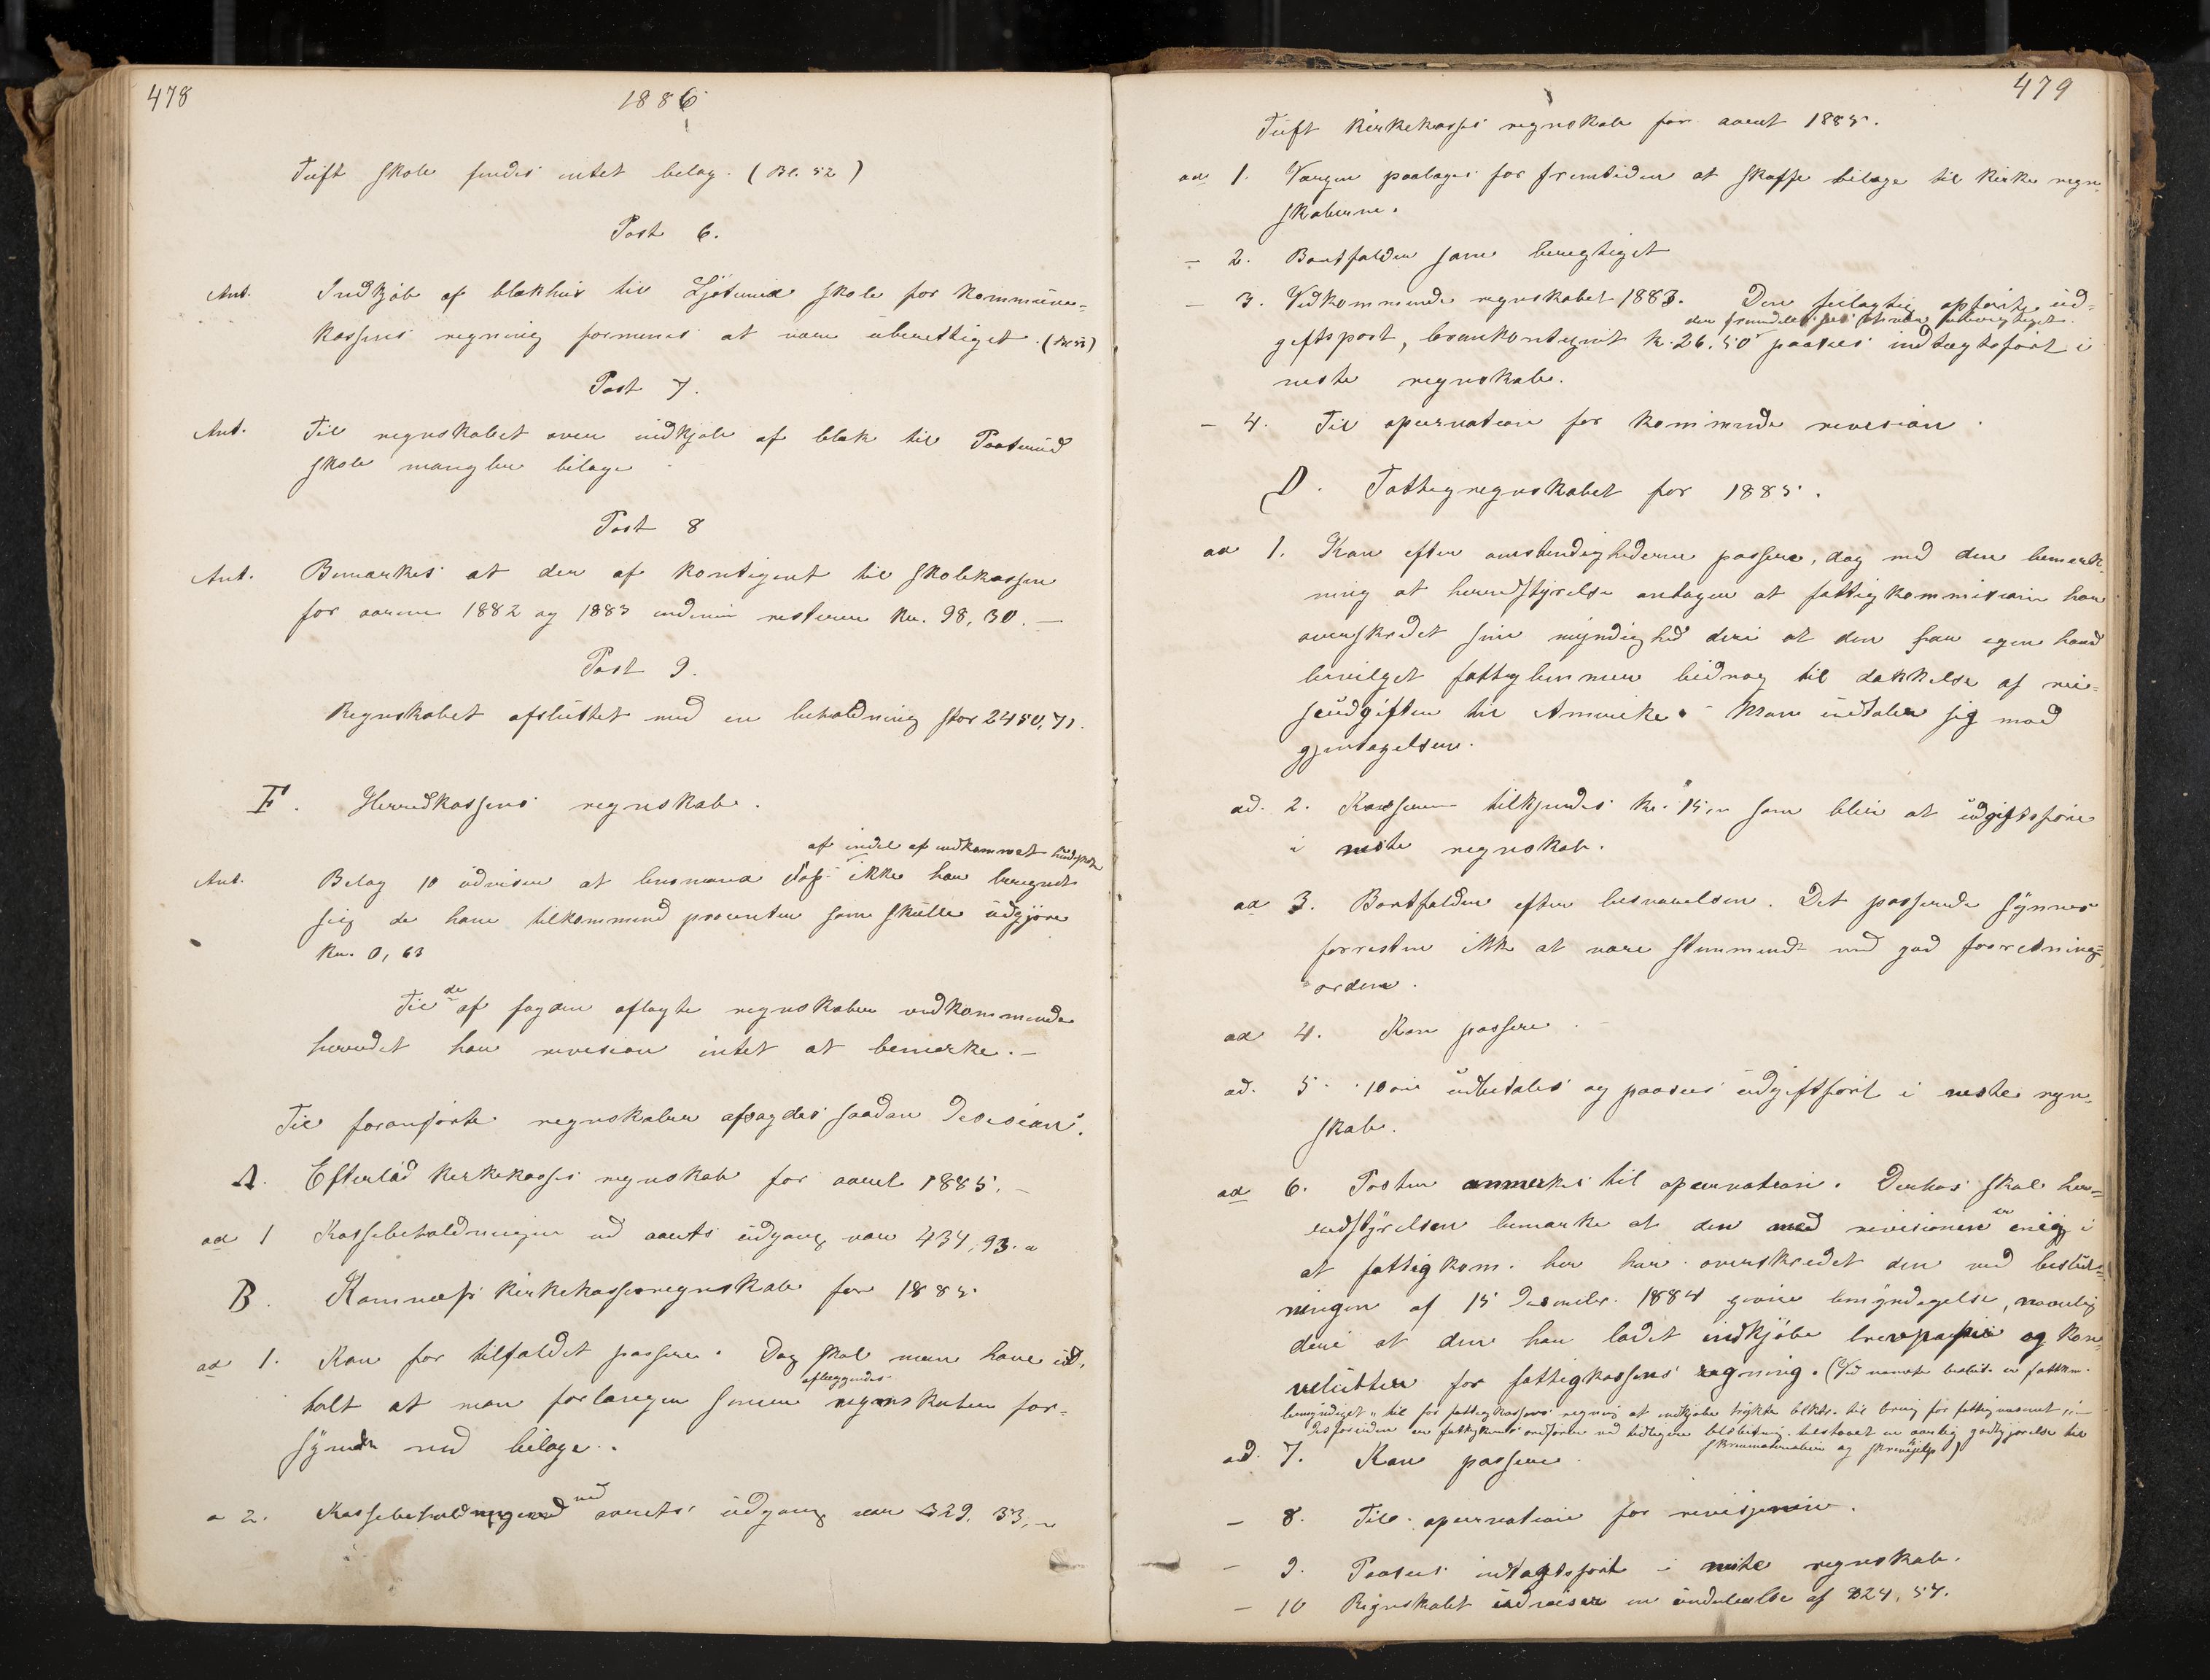 478
1886
Tuft skole findes intet belag. (Bl. 52)
Post 6.
Ant. Indkjøb af blækhus til skole for kommune-
kassens regning formenes at være uberettiget.
Post 7.
Ant. Til regnskabet over indkjøb af blæk til
skole mangler bilage
Post 8
Ant. Bemærkes at der af kontigent til skolekassen
for aarene 1882 og 1883 endnu resterer Kr. 98,30. —
Post 9.
Regnskabet afsluttet med en beholdning stor 2450,71.
F. Herredkassens regnskab.
af indkommet
Ant. Belag 10 udviser at lensmand ikke har beregnet
sig de ham tilkommend procenter som skulle udgjøre
Kr. 0,63
Til de af fogden aflagte regnskaber vedkommende
herredet har revision intet at bemærke. —
Til foranførte regnskaber afsagdes saadan Decision:
A. Efteløt kirkekasses regnskab for aaret 1885. —
ad 1 Kassebeholdningen ved aarets udgang var 434,93.
B. Ramnæs kirkekasseregnskab for 1885.
ad 1. Kan for tilfældet passere. Dog skal man have ud-
aflæggendes
talt at man forlanger regnskaber for-
synede med bilage.
" 2. Kassebeholdningen ved aarets udgang var 329,33, "
479
Tuft kirkekasses regnskab for aaret 1885.
ad 1. Værgen paalæges for fremtiden at skaffe bilage til kirkeregn-
skaberne.
– 2. Bortfalder som berigtiget
– 3. Vedkommende regnskabet 1883. Den feilagtig opførte ud-
giftspost, brankontigent kr. 26.50 paasees indtægtsført i
neste regnskab.
– 4. Til opservation for kommende revision.
D. Fattigregnskabet for 1885.
ad 1. Kan efter omstendighederne passere, dog med den bemerk-
ning at herredstyrelse antager at fattigkommission har
overskredet sin myndighed deri at den paa egen haand
bevilget fattiglemmer bidrag til dækkelse af rei-
seudgifter til Amerika. – Man udtaler sig mod
gjentagelsen.
ad. 2. Kassereren tilkjendes kr. 15 som blir at udgiftsføre
i neste regnskab.
ad 3. Bortfalder efter besvarelsen. Det passerede synnes
forresten ikke at være stemmende med god forretnings-
orden.
ad 4. Kan passere.
ad. 5. 10 øre udbetales og paasees udgiftsført i neste regn-
skab.
ad 6. Posten anmerkes til opservation. Derhos skal her-
redstyrelsen bemærke at den med revisionen er enig i
at fattigkom. her har overskredet den ved beslut-
ningen af 15 Decembr. 1884 givne bemyndigelse, navnlig
deri at den har ladet indkjøbe brevpapir og kon-
velutter for fattigkassens regning. (Ved nævnte beslut. er fattkm.
bemyndiget " til for fattigkassens regning at indkjøbe trykte blktr. til brug for fattigvæsenet,
desforuden er fattigkoms ordfører ved tidligere beslutning tilstaaet en aarlig godtgjørelse til
skrivematerialier og skrivehjelp)
ad. 7. Kan passere.
– 8. Til opservation for revisionen.
– 9. Paasees indtægtsført i neste regnskab.
– 10 Regnskabet udviser en underbalse af 824,57.